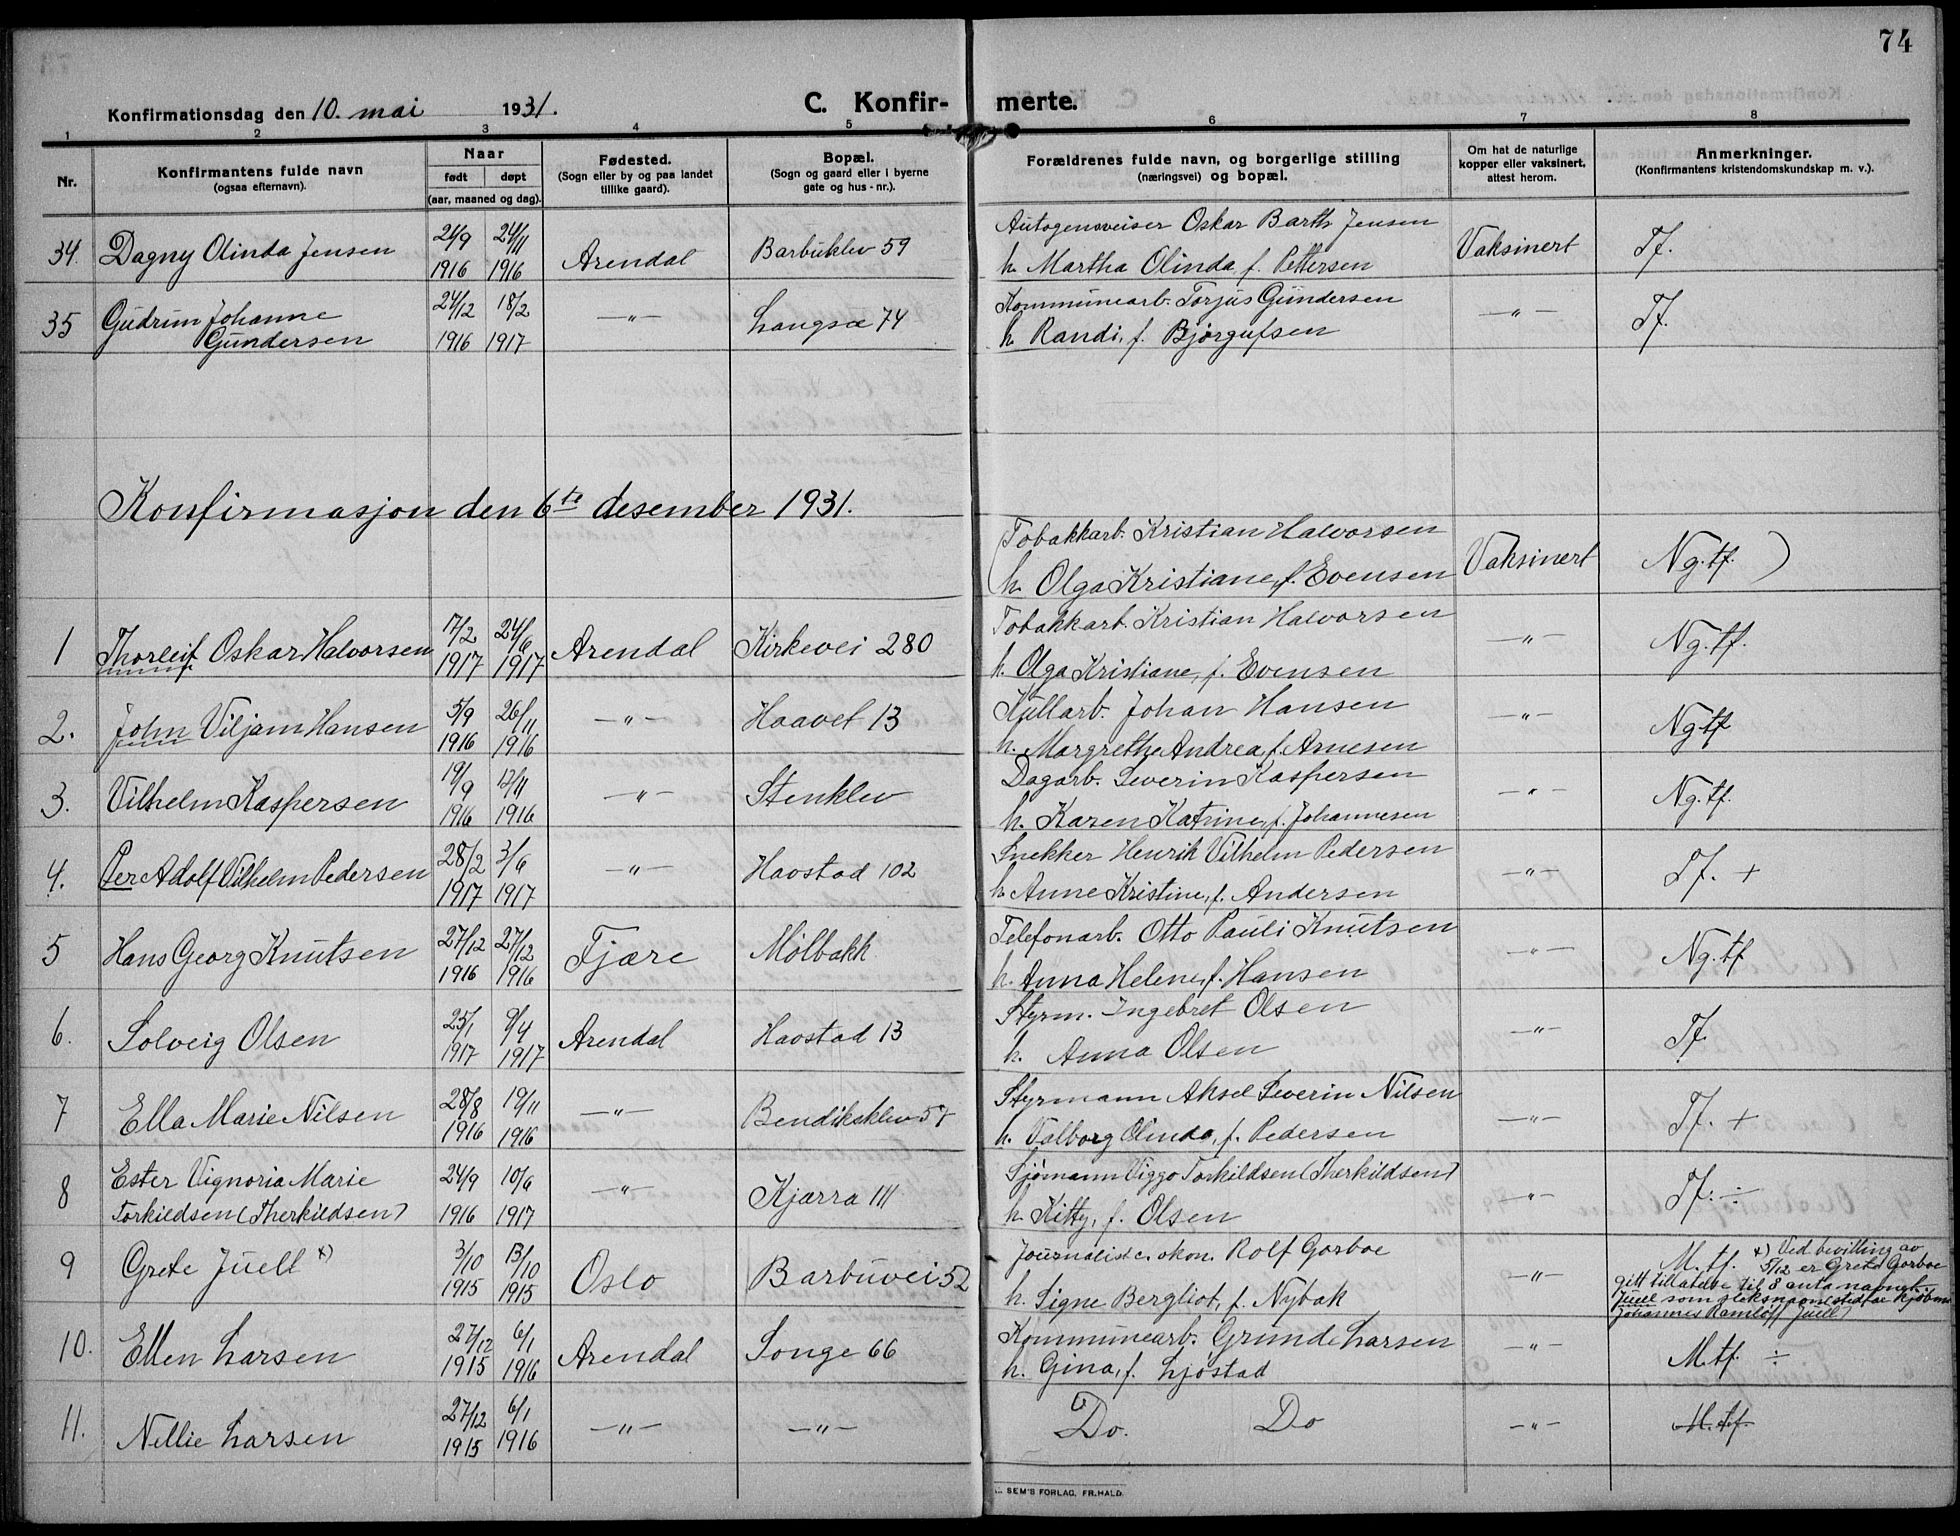 74
Konfirmationsdag den 10. mai 1931.
C. Konfirmerte.
1 2 3 4 5 6 7 8
Nr.
Konfirmantens fulde navn
(ogsaa efternavn).
Naar
født døpt
(aar, maaned og dag).
Fødested.
(Sogn eller by og paa landet
tillike gaard).
Bopæl.
(Sogn og gaard eller i byerne
gate og hus-nr.).
Forældrenes fulde navn, og borgerlige stilling
(næringsvei) og bopæl.
Om hat de naturlige
kopper eller vaksinert,
attest herom.
Anmerkninger.
(Konfirmantens kristendomskundskap m. v.).
34. Dagny Olinda Jensen 24/9 1916 24/11 1916 Arendal Barbuklev 59
Autogensveiser Oskar Barth Jensen
h. Martha Olinda, f. Pettersen
Vaksinert Tf.
35 Gudrun Johanne
Gundersen 24/12 1916 18/2 1917 —"— Langsæ 74
Kommunearb. Torjus Gundersen
h. Randi, f. Bjørgufsen
—"— Tf.
Konfirmasjon den 6te desember 1931.
(Tobakkarb. Kristian Halvorsen
h. Olga Kristiane, f. Evensen
Vaksinert Ng. tf. )
1 Thorleif Oskar Halvorsen 17/2 1917 24/6 1917 Arendal Kirkevei 280
Tobakkarb. Kristian Halvorsen
h. Olga Kristiane, f. Evensen
—"— Ng. tf.
2. John Viljam Hansen 5/9 1916 26/11 1916 —"— Haavet 13
Kullarb. Johan Hansen
h. Margrethe Andrea, f. Arnesen
—"— Ng tf
3. Vilhelm Kaspersen 19/9 1916 12/11 1916 —"— Stenklev
Dagarb. Severin Kaspersen
h. Karen Katrine, f. Johannesen
—"— Ng. tf.
4. Per Adolf Vilhelm Pedersen 28/2 1917 3/6 1917 —"— Havstad 102
Snekker Henrik Vilhelm Pedersen
h. Anne Kristine, f. Andersen
—"— Tf. +
5 Hans Georg Knutsen 27/12 1916 27/12 1916 Fjære Mølbakk
Telefonarb. Otto Pauli Knutsen
h. Anna Helene, f. Hansen
—"— Ng. tf
6. Solveig Olsen 25/1 1917 9/4 1917 Arendal Havstad 13
Styrm. Ingebret Olsen
h. Anna Olsen
—"— Tf.
7 Ella Marie Nilsen 28/8 1916 19/11 1916 —"— Bendiksklev 57
Styrmann Aksel Severin Nilsen
h. Valborg Olinda, f. Pedersen
—"— Tf. +
8 Ester Vignoria Marie
Torkildsen (Therkildsen) 24/9 1916 10/6 1917 —"— Kjærra 111
Sjømann Viggo Torkildsen (Therkildsen)
h. Kitty, f. Olsen
—"— Tf. ÷
9 Grete Juell x) 3/10 1915 13/10 1915 Oslo Barbuvei 52
Journalist c. økon. Rolf Gorboe
h. Signe Bergliot, f. Nybak
—"— M. tf. x) Ved bevilling av
5/12 er Grete Gorboe
gitt tillatelse til å anta navnet
Juell som slektsnavn
Johannes Ramløff Juell)
10. Ellen Larsen 27/12 1915 6/1 1916 Arendal Songe 66
Kommunearb. Grunde Larsen
h. Gina, f. Ljøstad
—"— M. tf. ÷
11. Nellie Larsen 27/12 1915 6/1 1916 —"— —"—
Do. Do
—"— M. tf.
SEM'S FORLAG, FR.HALD.